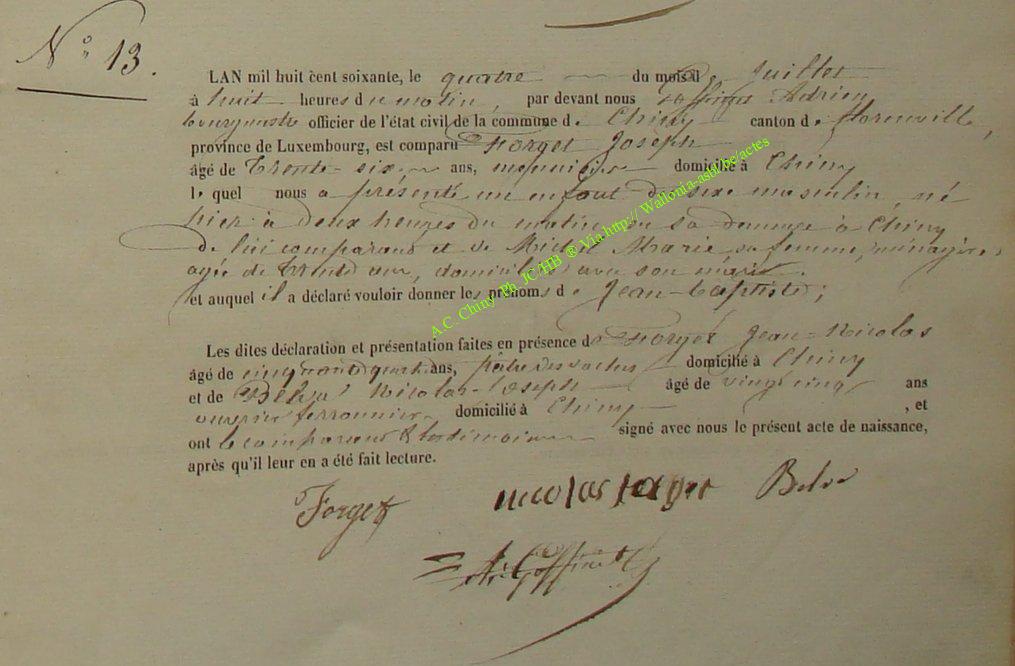 N° 13.
LAN mil huit cent soixante, le quatre du mois d juillet
à huit heures du matin, par devant nous Adrien
bourgmestre officier de l'état civil de la commune de Chiny canton de florenville,
province de Luxembourg, est comparu Forget Joseph
âgé de trente-six ans, menuisier domicilié à Chiny
le quel nous a présenté un enfant du sexe masculin, né
hier à deux heures du matin en sa demeure à Chiny
de lui comparant et de Marie, sa femme, ménagère,
agée de trente ans, domiciliée avec son mari.
et auquel il a déclaré vouloir donner les prénoms de Jean-baptiste;
Les dites déclaration et présentation faites en présence de Forget Jean-Nicolas
âgé de cinquante quatre ans, pâtre des vaches domicilié à Chiny
et de Nicolas-Joseph âgé de vingt cinq ans
ouvrier ferronnier domicilié à Chiny , et
ont le comparant & les témoins signé avec nous le présent acte de naissance,
après qu'il leur en a été fait lecture.
Forget nicolas forget
A.C. Chiny Ph JC/HB ® Via http:// Wallonia-asbl.be/actes